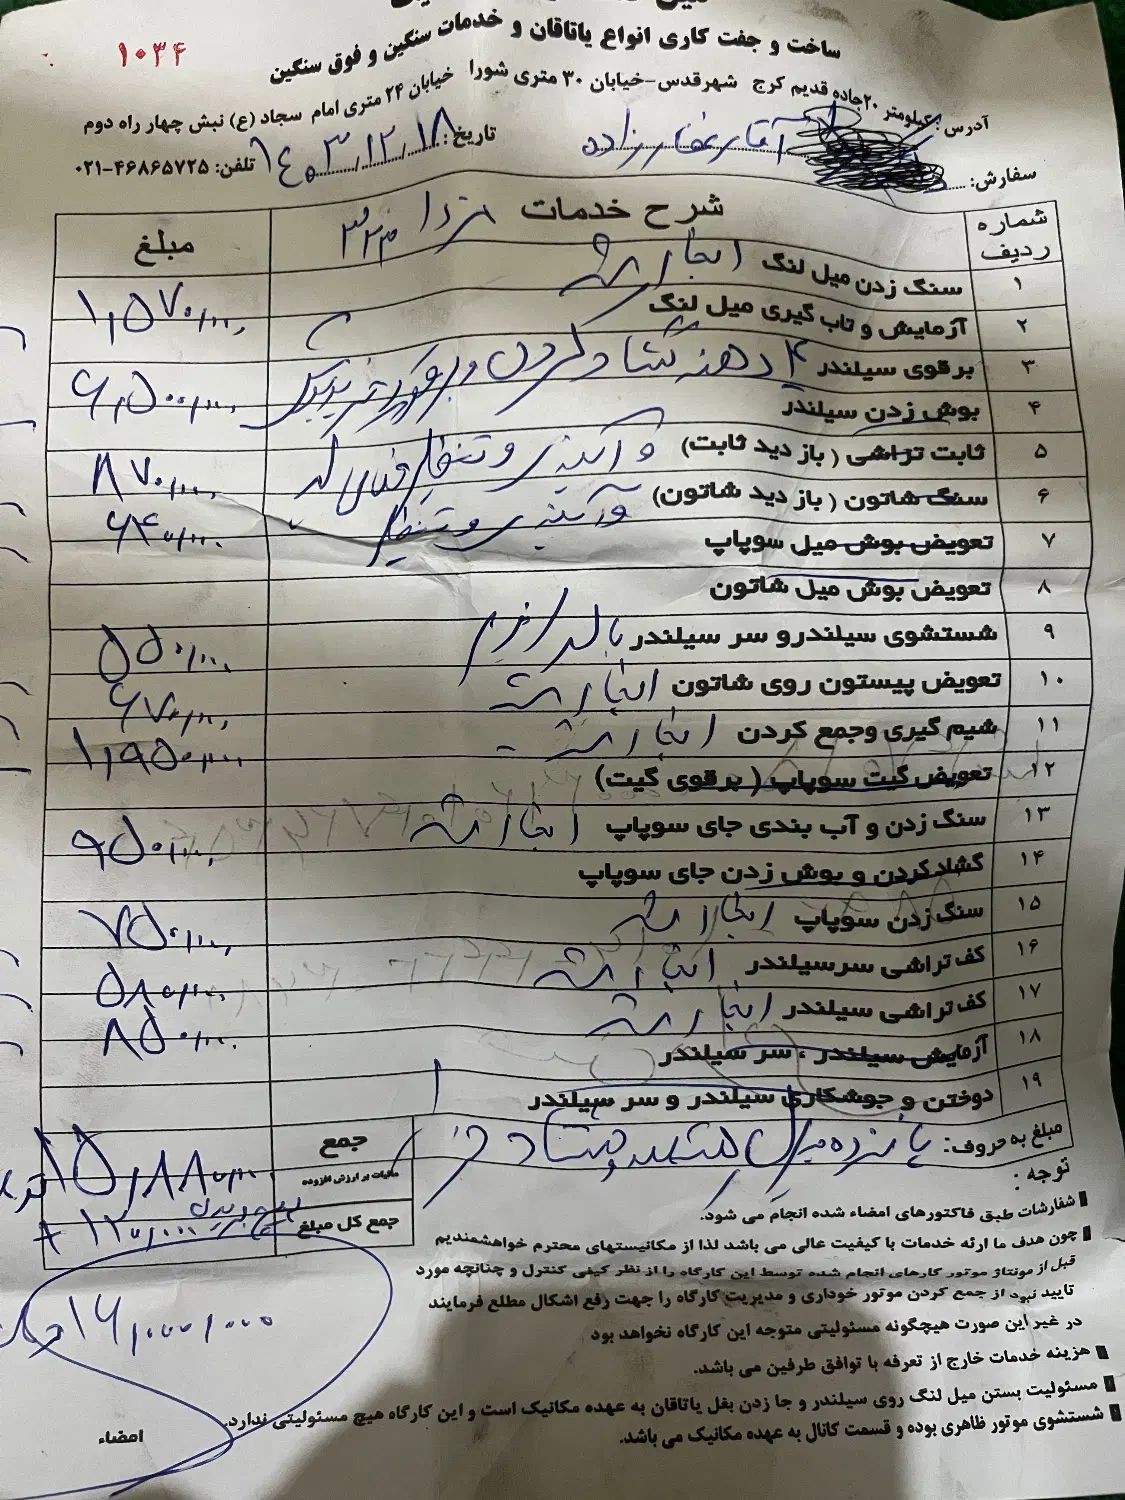 ساخت و جفت کاری انواع یاتاقان و خدمات سنگین و فوق سنگین
۱۰۳۴
آدرس: کیلومتر ۲۰ جاده قدیم کرج شهرقدس-خیابان ۳۰ متری شورا خیابان ۲۴ متری امام سجاد (ع) نبش چهار راه دوم
سفارش: آقای غفارزاده تاریخ: ۱۴۰۳/۱۲/۱۸ تلفن: ۴۶۸۶۵۷۲۵-۰۲۱
شماره ردیف شرح خدمات مزدا ۳۲۳ مبلغ
۱ سنگ زدن میل لنگ انجام شد ۱,۵۷۰/۰۰۰
۲ آزمایش و تاب گیری میل لنگ
۳ برقوی سیلندر ۴ دهنه گشاد کردن و ۶,۵۰۰/۰۰۰
۴ بوش زدن سیلندر
۵ ثابت تراشی (باز دید ثابت) و ۸۷۰/۰۰۰
۶ سنگ شاتون (باز دید شاتون) و ۶۴۰/۰۰۰
۷ تعویض بوش میل سوپاپ
۸ تعویض بوش میل شاتون
۹ شستشوی سیلندرو سر سیلندر ۵۵۰/۰۰۰
۱۰ تعویض پیستون روی شاتون انجام شد ۶۷۰/۰۰۰
۱۱ شیم گیری وجمع کردن انجام شد ۱,۹۵۰/۰۰۰
۱۲ تعویض گیت سوپاپ (برقوی گیت)
۱۳ سنگ زدن و آب بندی جای سوپاپ انجام شد ۹۵۰/۰۰۰
۱۴ گشادکردن و بوش زدن جای سوپاپ
۱۵ سنگ زدن سوپاپ انجام شد ۷۵۰/۰۰۰
۱۶ کف تراشی سرسیلندر انجام شد ۵۸۰/۰۰۰
۱۷ کف تراشی سیلندر انجام شد ۸۵۰/۰۰۰
۱۸ آزمایش سیلندر، سر سیلندر
۱۹ دوختن و جوشکاری سیلندر و سر سیلندر
مبلغ به حروف: پانزده میلیون هشتصد و هشتاد جمع ۱۵,۸۸۰/۰۰۰
مالیات بر ارزش افزوده
جمع کل مبلغ + ۱۲۰,۰۰۰
۱۶,۰۰۰,۰۰۰
توجه:
سفارشات طبق فاکتورهای امضاء شده انجام می شود.
چون هدف ما ارئه خدمات با کیفیت عالی می باشد لذا از مکانیستهای محترم خواهشمندیم
قبل از مونتاژ موتور کارهای انجام شده توسط این کارگاه را از نظر کیفی کنترل و چنانچه مورد
تایید نبود از جمع کردن موتور خوداری و مدیریت کارگاه را جهت رفع اشکال مطلع فرمایند
در غیر این صورت هیچگونه مسئولیتی متوجه این کارگاه نخواهد بود
هزینه خدمات خارج از تعرفه با توافق طرفین می باشد.
مسئولیت بستن میل لنگ روی سیلندر و جا زدن بغل یاتاقان به عهده مکانیک است و این کارگاه هیچ مسئولیتی ندارد.
شستشوی موتور ظاهری بوده و قسمت کانال به عهده مکانیک می باشد.
امضاء